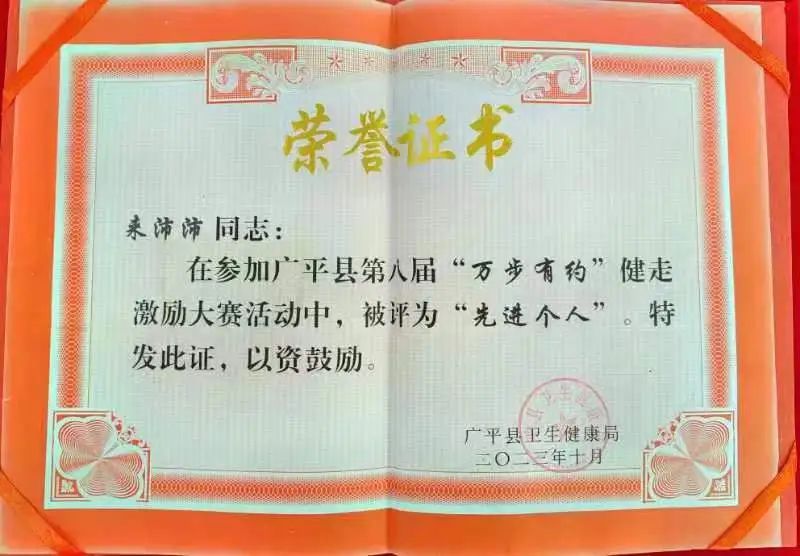 荣誉证书
来沛沛 同志：
在参加广平县第八届“万步有约”健走
激励大赛活动中，被评为“先进个人”。特
发此证，以资鼓励。
广平县卫生健康局
二〇二三年十月